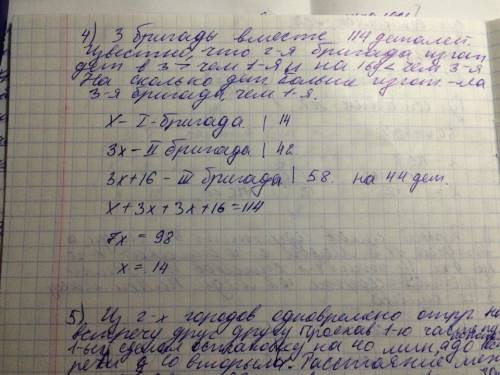 4) 3 бригады вместе 114 деталей.
Известно что 2-я бригада изгот
дет в 3 > чем 1-я и на 16 < чем 3-я
На сколько дет больше изгот.-ла
3-я бригада, чем 1-я.
x - I - бригада | 14
3x - II бригада | 42
3x + 16 - III бригада | 58. на 44 дет.
x + 3x + 3x + 16 = 114
7x = 98
x = 14
5) Из 2-х городов одновремено отпр. на
встречу друг другу проехав 1-ю часть пу
1-ый сделал остановку на 40 мин, а до
речи со вторым. Расстояние меж